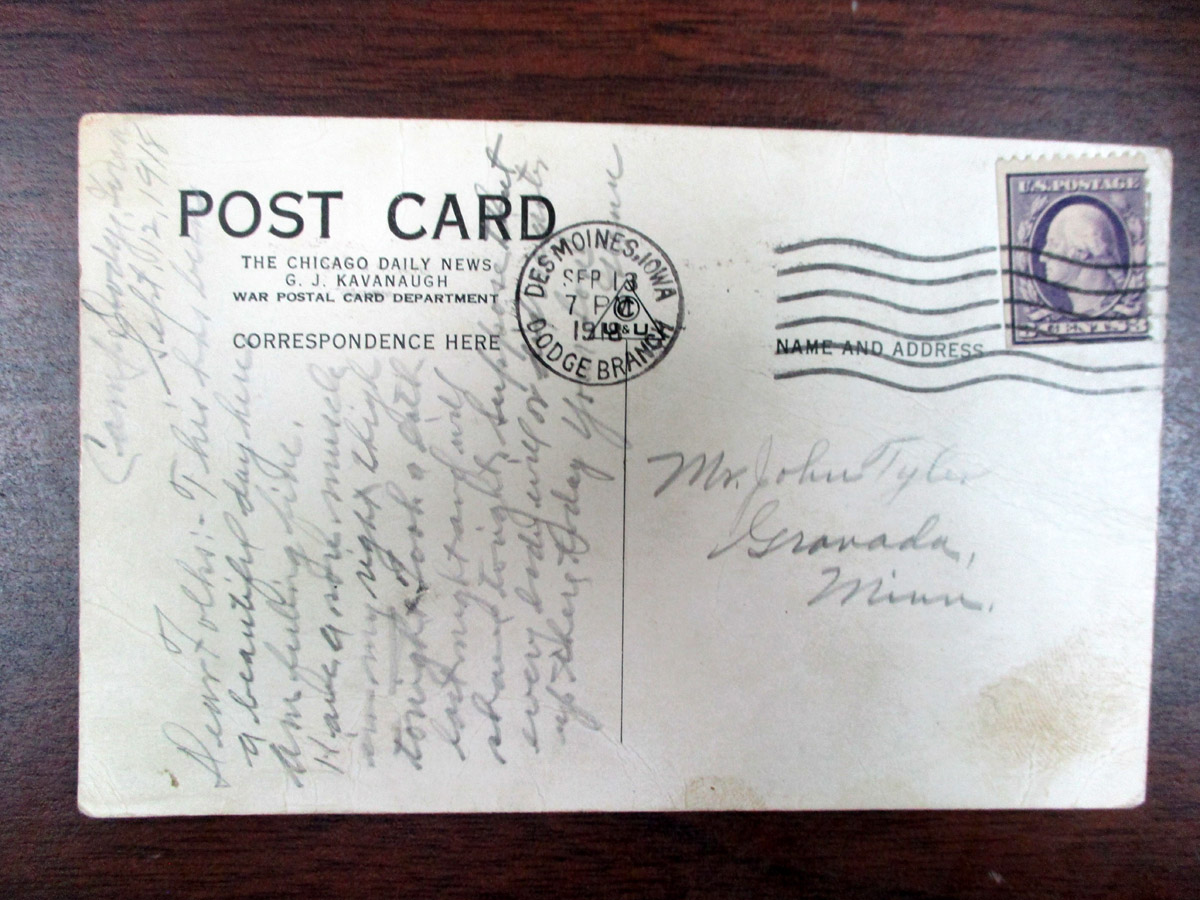 POST CARD
THE CHICAGO DAILY NEWS
G. J. KAVANAUGH
WAR POSTAL CARD DEPARTMENT
CORRESPONDENCE HERE
Camp Dodge, Iowa
Sept, 12, 1918
Dear Folks:- This has been
a beautiful day here
am feeling fine.
Have a sore muscle
in my right thigh
tonight took a bath
last night and
shave tonight, suppose
every body will
today
DES MOINES, IOWA
SEP 13
7 PM
1918
DODGE BRANCH
U & U
U.S. POSTAGE
3 CENTS 3
NAME AND ADDRESS
Mr. John Tyler
Granada,
Minn.